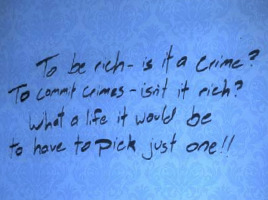 To be rich - is it a crime?
To commit crimes - isn't it rich?
What a life it would be
to have to pick just one!!